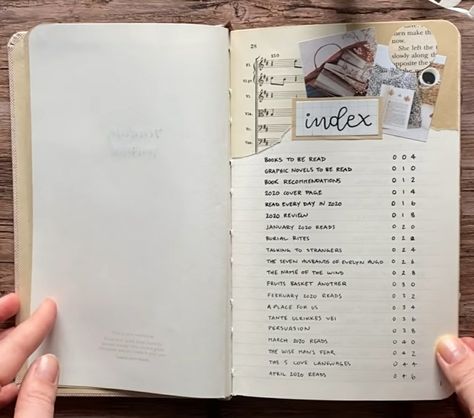 28
150
Fl.
Vla.
index
make them
now.
She left the
slowly along
opposite the
BOOKS TO BE READ 004
GRAPHIC NOVELS TO BE READ 010
BOOK RECOMMENDATIONS 012
2020 COVER PAGE 014
READ EVERY DAY IN 2020 016
2020 REVIEW 018
JANUARY 2020 READS 020
BURIAL RITES 022
TALKING TO STRANGERS 024
THE SEVEN HUSBANDS OF EVELYN HUGO 026
THE NAME OF THE WIND 028
FRUITS BASKET ANOTHER 030
FEBRUARY 2020 READS 032
A PLACE FOR US 034
TANTE ULRIKKES VEI 036
PERSUASION 038
MARCH 2020 READS 040
THE WISE MAN'S FEAR 042
THE 5 LOVE LANGUAGES 044
APRIL 2020 READS 046